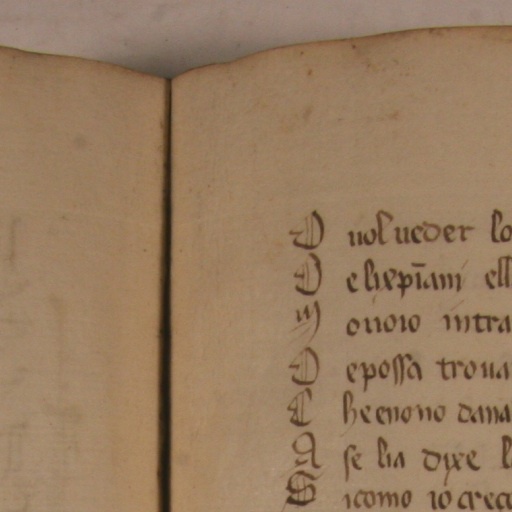 D uol ueder lo
D e lixp̄iani ell
M ouoio intra
D epossa troua
C he enono dana
A se lia dixe l
S icomo io creco